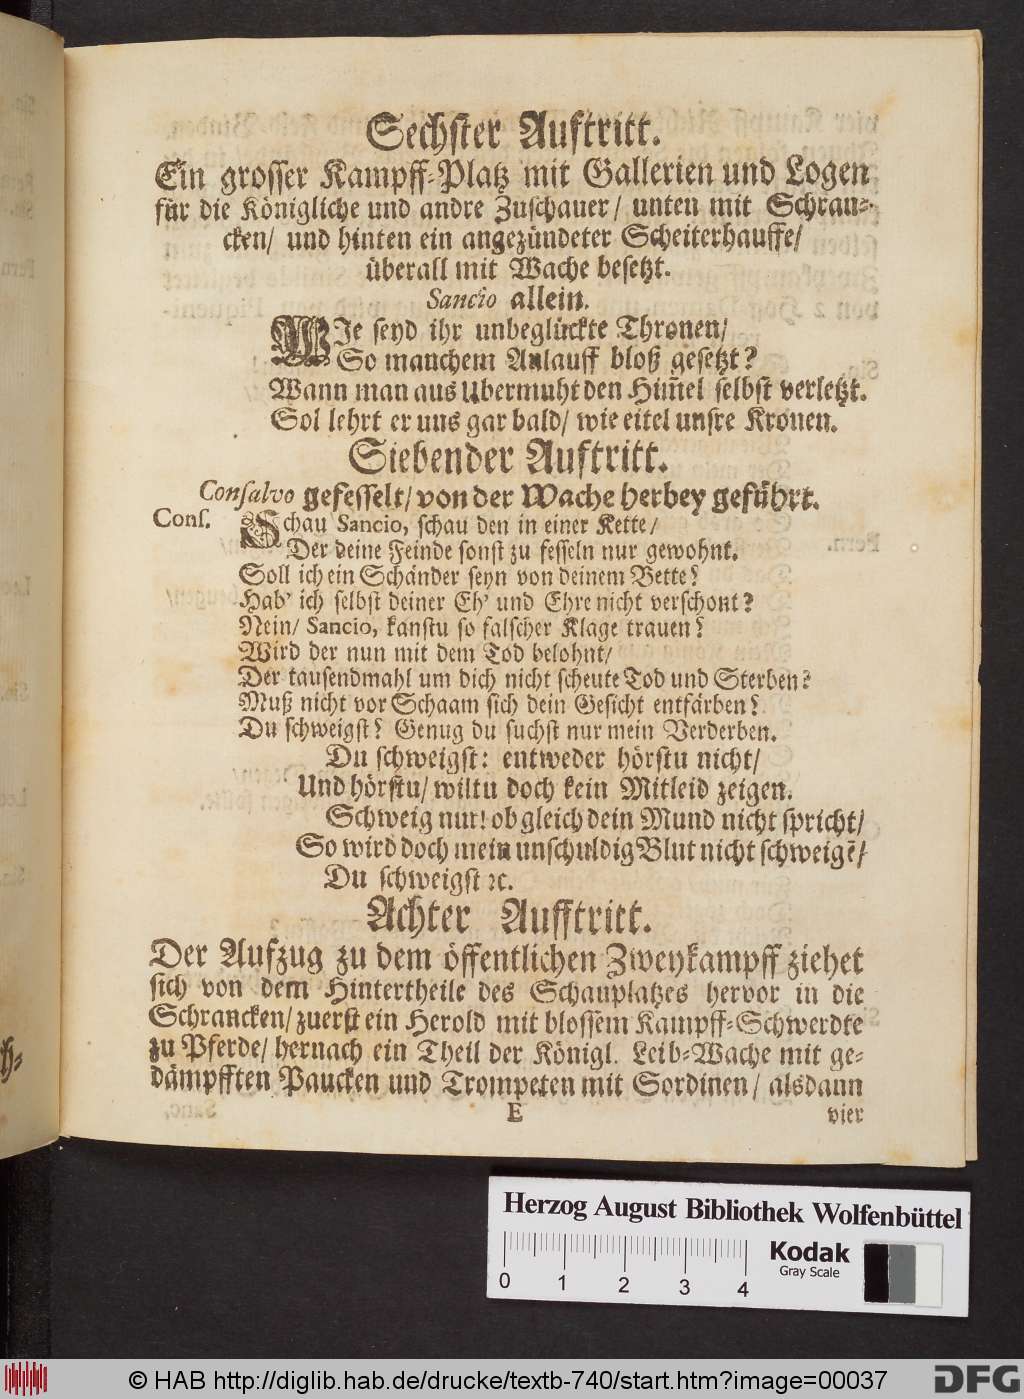 Sechster Auftritt.
Ein grosser Kampff-Platz mit Gallerien und Logen
für die Königliche und andre Zuschauer/ unten mit Schran-
cken/ und hinten ein angezündeter Scheiterhauffe/
überall mit Wache besetzt.
Sancio allein.
WJe seyd ihr unbeglückte Thronen/
So manchem Anlauff bloß gesetzt?
Wann man aus Ubermuht den Him̃el selbst verletzt.
Sol lehrt er uns gar bald/ wie eitel unsre Kronen.
Siebender Auftritt.
Consalvo gefesselt/ von der Wache herbey geführt.
Cons. Schau Sancio, schau den in einer Kette/
Der deine Feinde sonst zu fesseln nur gewohnt.
Soll ich ein Schänder seyn von deinem Bette?
Hab' ich selbst deiner Eh' und Ehre nicht verschont?
Nein/ Sancio, kanstu so falscher Klage trauen?
Wird der nun mit dem Tod belohnt/
Der tausendmahl um dich nicht scheute Tod und Sterben?
Muß nicht vor Schaam sich dein Gesicht entfärben?
Du schweigst? Genug du suchst nur mein Verderben.
Du schweigst: entweder hörstu nicht/
Und hörstu/ wiltu doch kein Mitleid zeigen.
Schweig nur! ob gleich dein Mund nicht spricht/
So wird doch mein unschuldig Blut nicht schweigē/
Du schweigst ꝛc.
Achter Aufftritt.
Der Aufzug zu dem öffentlichen Zweykampff ziehet
sich von dem Hintertheile des Schauplatzes hervor in die
Schrancken/ zuerst ein Herold mit blossem Kampff-Schwerdte
zu Pferde/ hernach ein Theil der Königl. Leib-Wache mit ge-
dämpfften Paucken und Trompeten mit Sordinen/ alsdann
E vier
Herzog August Bibliothek Wolfenbüttel
Kodak
Gray Scale
0 1 2 3 4
© HAB http://diglib.hab.de/drucke/textb-740/start.htm?image=00037
DFG